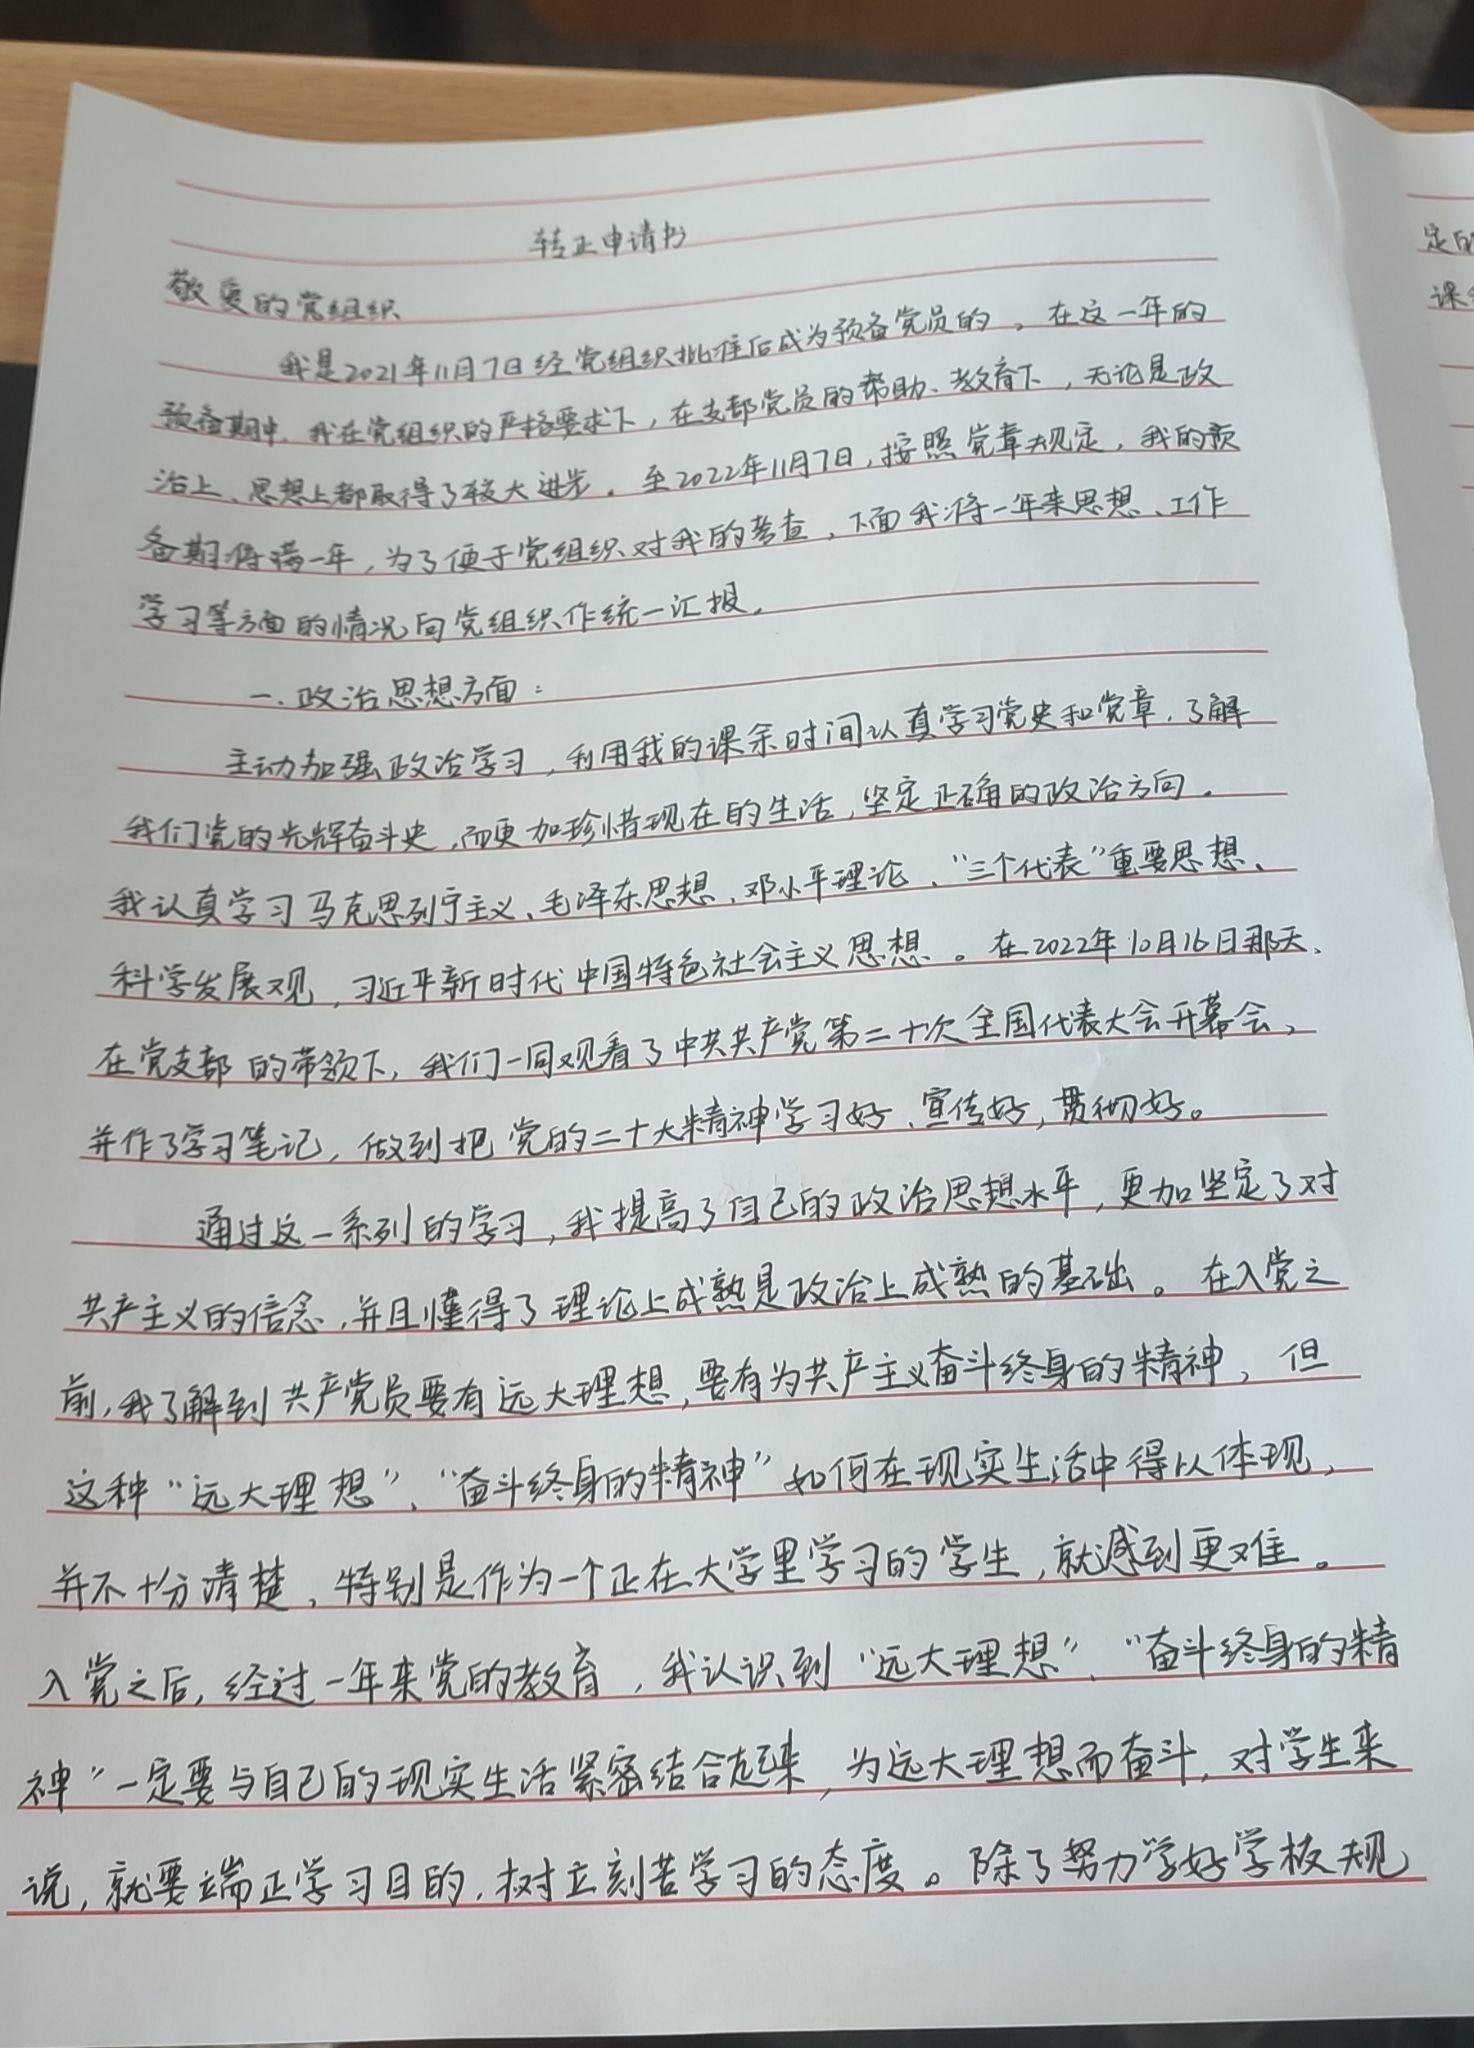 转正申请书
敬爱的党组织
我是2021年11月7日经党组织批准后成为预备党员的。在这一年的
预备期中，我在党组织的严格要求下，在支部党员的帮助、教育下，无论是政
治上、思想上都取得了较大进步。至2022年11月7日，按照党章规定，我的预
备期将满一年，为了便于党组织对我的考查，下面我将一年来思想、工作
学习等方面的情况向党组织作统一汇报。
一、政治思想方面：
主动加强政治学习，利用我的课余时间认真学习党史和党章，了解
我们党的光辉奋斗史，而更加珍惜现在的生活，坚定正确的政治方向。
我认真学习马克思列宁主义、毛泽东思想、邓小平理论、“三个代表”重要思想、
科学发展观，习近平新时代中国特色社会主义思想。在2022年10月16日那天、
在党支部的带领下，我们一同观看了中共共产党第二十次全国代表大会开幕会，
并作了学习笔记，做到把党的二十大精神学习好、宣传好，贯彻好。
通过这一系列的学习，我提高了自己的政治思想水平，更加坚定了对
共产主义的信念，并且懂得了理论上成熟是政治上成熟的基础。在入党之
前，我了解到共产党员要有远大理想，要有为共产主义奋斗终身的精神，但
这种“远大理想”、“奋斗终身的精神”如何在现实生活中得以体现，
并不十分清楚，特别是作为一个正在大学里学习的学生，就感到更难。
入党之后，经过一年来党的教育，我认识到“远大理想”、“奋斗终身的精
神”一定要与自己的现实生活紧密结合起来，为远大理想而奋斗，对学生来
说，就要端正学习目的，树立刻苦学习的态度。除了努力学好学校规
定的
课